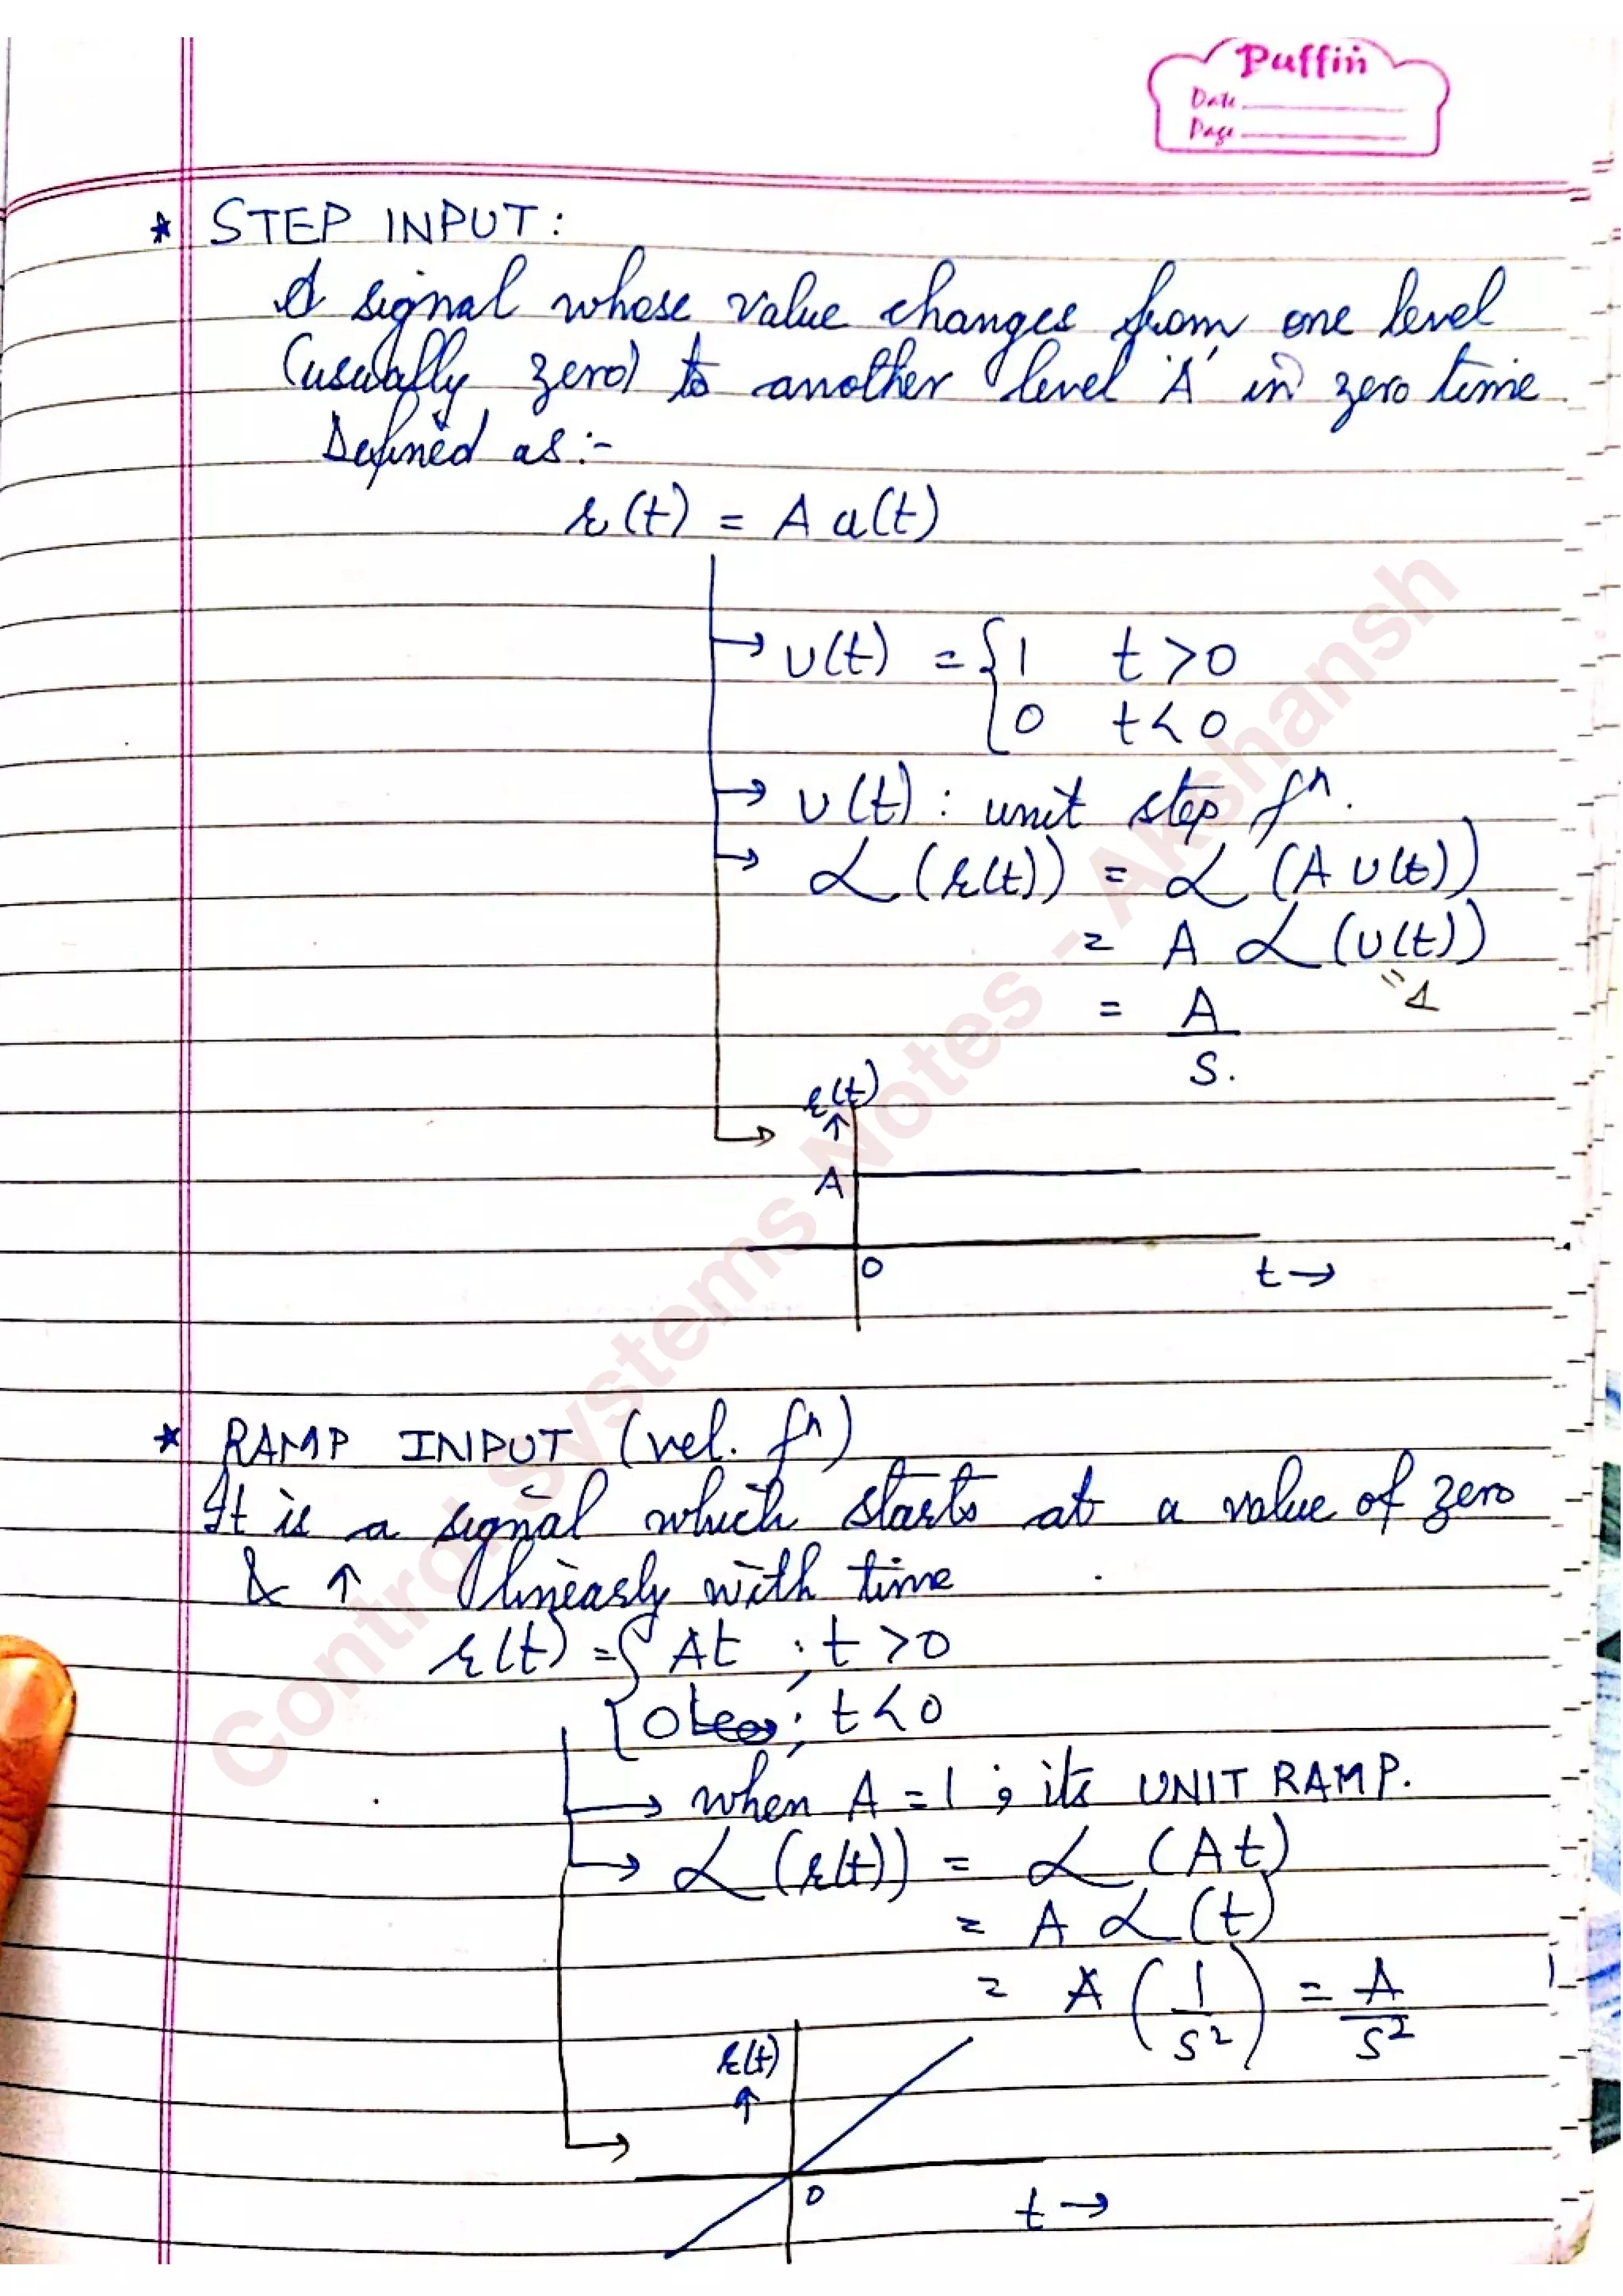 Puffin
Date
Page
* STEP INPUT:
A signal whose value changes from one level
(usually zero) to another level 'A' in zero time
Defined as:-
r(t) = A u(t)
→ u(t) = { 1 t > 0
0 t < 0
→ u(t) : unit step fⁿ.
→ ℒ (r(t)) = ℒ (A u(t))
= A ℒ (u(t))
= 1
= A/s.
r(t)
↑
A
0
t →
* RAMP INPUT (vel. fⁿ)
It is a signal which starts at a value of zero
& ↑ linearly with time
r(t) = { At ; t > 0
0 ; t < 0
→ when A = 1 ; its UNIT RAMP.
→ ℒ (r(t)) = ℒ (At)
= A ℒ (t)
= A (1/s²) = A/s²
r(t)
↑
0
t →
Control Systems Notes - Akshansh